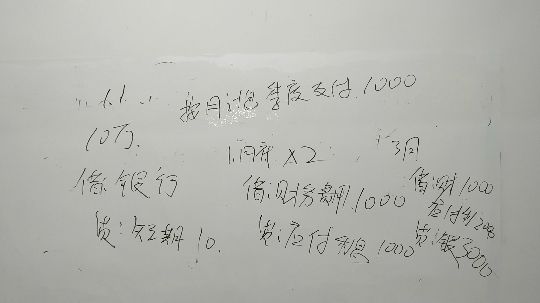 1.1 按月计息 季度支付 1000
10万
1月底 X2 3月
借:银行 借:财务费用 1000 借:财 1000
应付利 2000
贷:短期 10 贷:应付利息 1000 贷:银 3000